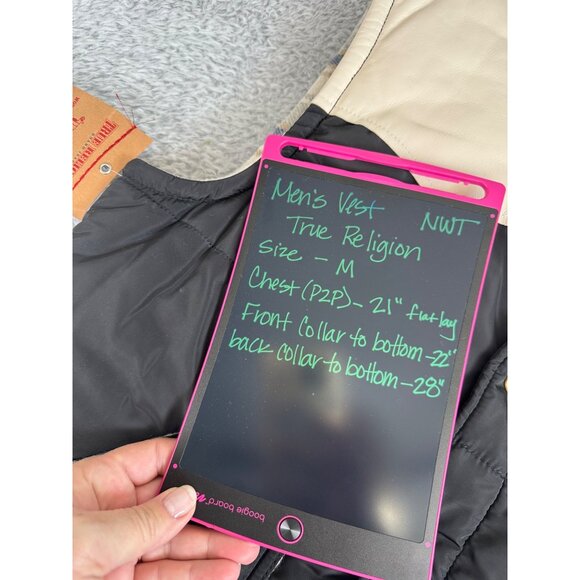 Men's Vest NWT
True Religion
Size - M
Chest (P2P) - 21" flat lay
Front Collar to bottom - 22"
back collar to bottom - 28"
boogie board